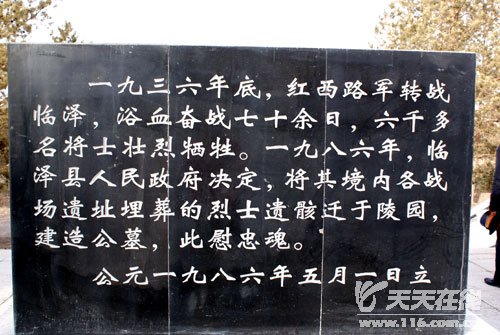 一九三六年底，红西路军转战
临泽，浴血奋战七十余日，六千多
名将士壮烈牺牲。一九八六年，临
泽县人民政府决定，将其境内各战
场遗址埋葬的烈士遗骸迁于陵园，
建造公墓，此慰忠魂。
公元一九八六年五月一日立
天天在线
www.116.com.cn